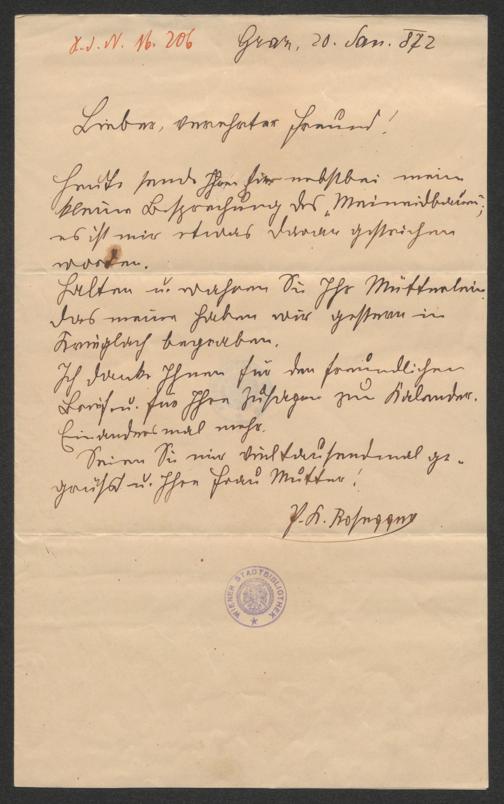 J. N. 16.206
Graz, 20. Jan. 872
Lieber, verehrter Freund!
Heute sende Ihnen hier nebstbei meine
kleine Besprechung des „Meineidbauer";
es ist mir etwas daran gestrichen
worden.
Halten u. wahren Sie Ihr Mütterlein,
das meine haben wir gestern in
Krieglach begraben.
Ich danke Ihnen für den freundlichen
Brief u. für Ihre Zusagen zum Kalender.
Ein andersmal mehr.
Seien Sie mir vieltausendmal ge-
grüsst u. Ihre Frau Mutter!
P. K. Rosegger
WIENER STADTBIBLIOTHEK